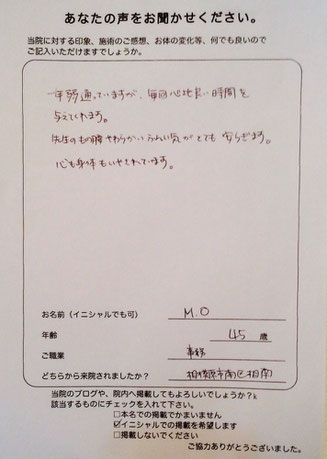 あなたの声をお聞かせください。
当院に対する印象、施術のご感想、お体の変化等、何でも良いので
ご記入いただけますでしょうか。
一年弱通っていますが、毎回心地良い時間を
与えてくれます。
先生のもの腰やわらかいふんい気がとても安らぎます。
心も身体もいやされています。
お名前（イニシャルでも可） M.O
年齢 45 歳
ご職業 事務
どちらから来院されましたか？ 相模原市南区相南
当院のブログや、院内へ掲載してもよろしいでしょうか？
該当するものにチェックを入れて下さい。
□本名での掲載でかまいません
☑イニシャルでの掲載を希望します
□掲載しないでください
ご協力ありがとうございました。